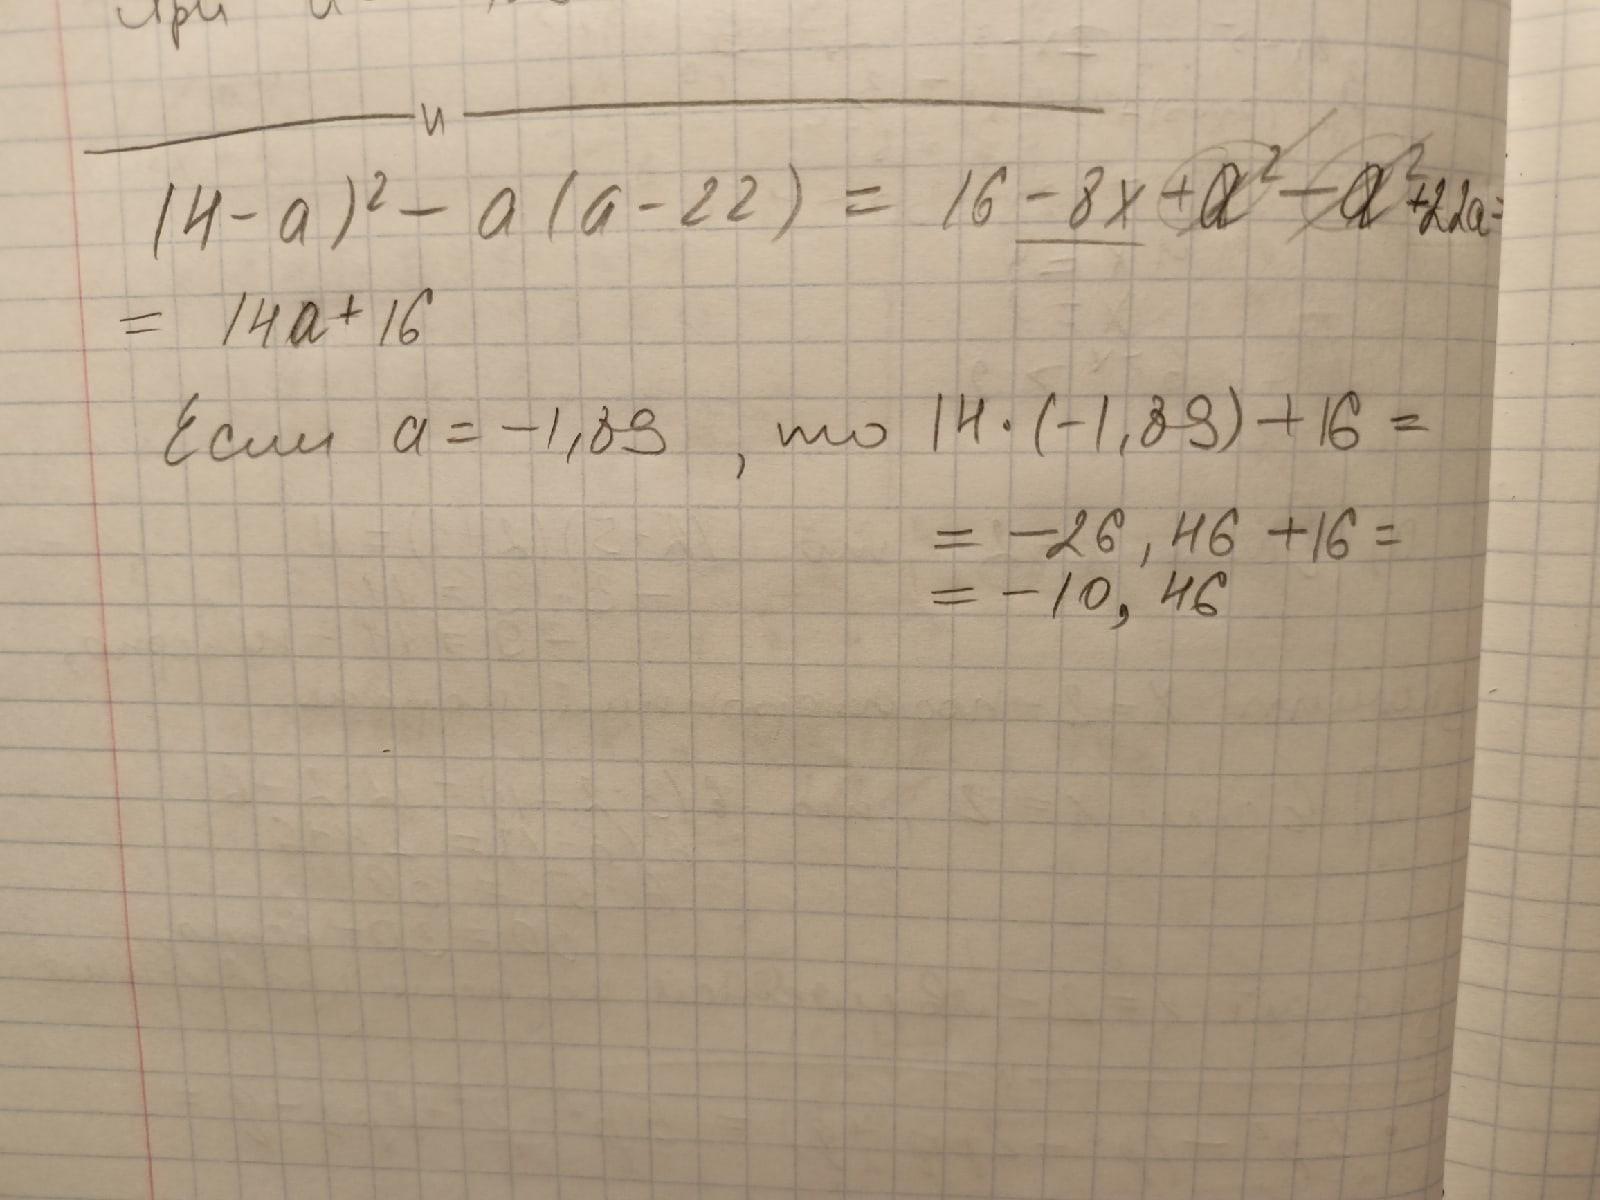 При
и
(4-a)² - a(a-22) = 16 - 8x + a² - a² + 22a =
= 14a + 16
Если a = -1,89 , то 14·(-1,89) + 16 =
= -26,46 + 16 =
= -10,46